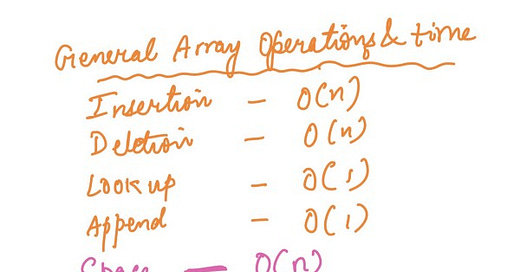 General Array Operations & time
Insertion - O(n)
Deletion - O(n)
Look up - O(1)
Append - O(1)
Space - O(n)